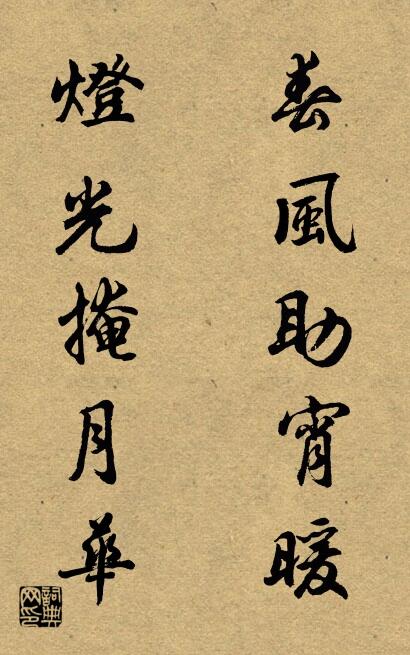 春風助宵暖
燈光掩月華
詞典网印